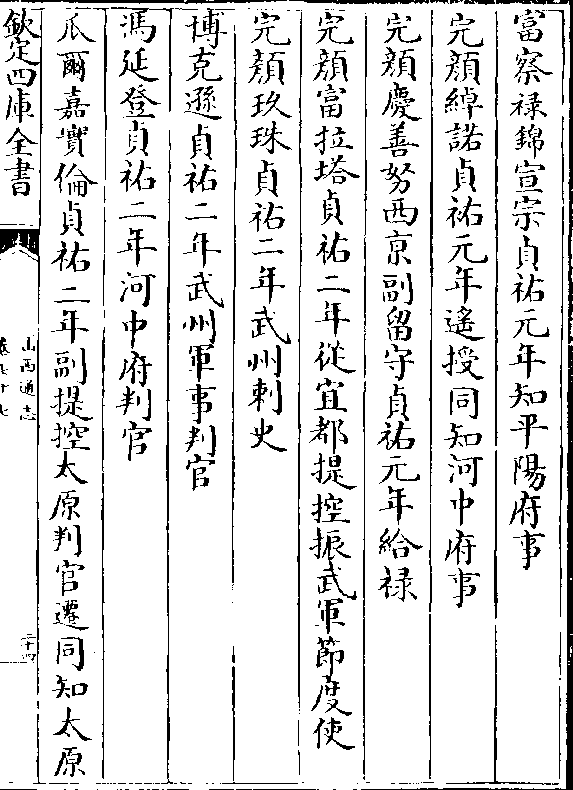 富察禄錦宣宗貞祐元年知平陽府事
完顔綽諾貞祐元年遙授同知河中府事
完顔慶善努西京副留守貞祐元年給禄
完顔富拉塔貞祐二年從宜都提控振武軍節度使
完顔玖珠貞祐二年武州刺史
博克遜貞祐二年武州軍事判官
馮延登貞祐二年河中府判官
爪爾嘉實倫貞祐二年副提控太原判官遷同知太原
欽定四庫全書
山西通志